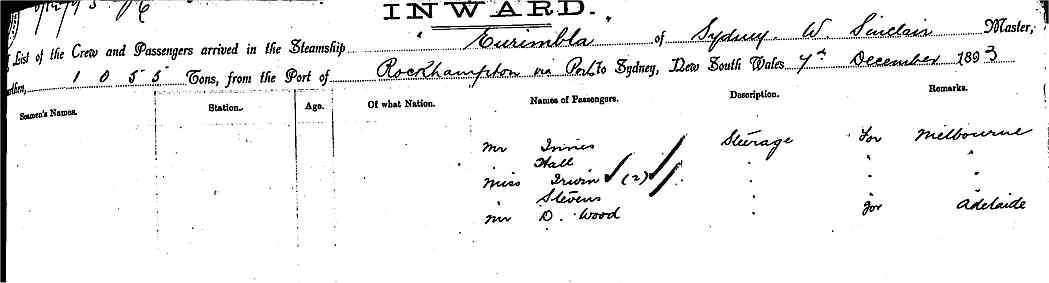 INWARD.
List of the Crew and Passengers arrived in the Steamship Eurimbla of Sydney. W. Sinclair Master,
Burthen, 1055 Tons, from the Port of Rockhampton via Ports to Sydney, New South Wales 7th December 1893
Seamen's Names. Station. Age. Of what Nation. Names of Passengers. Description. Remarks.
Mr Innies Steerage For Melbourne
" Hall " " "
Miss Irwin (2) " " "
Stevens
Mr D. Wood " for Adelaide